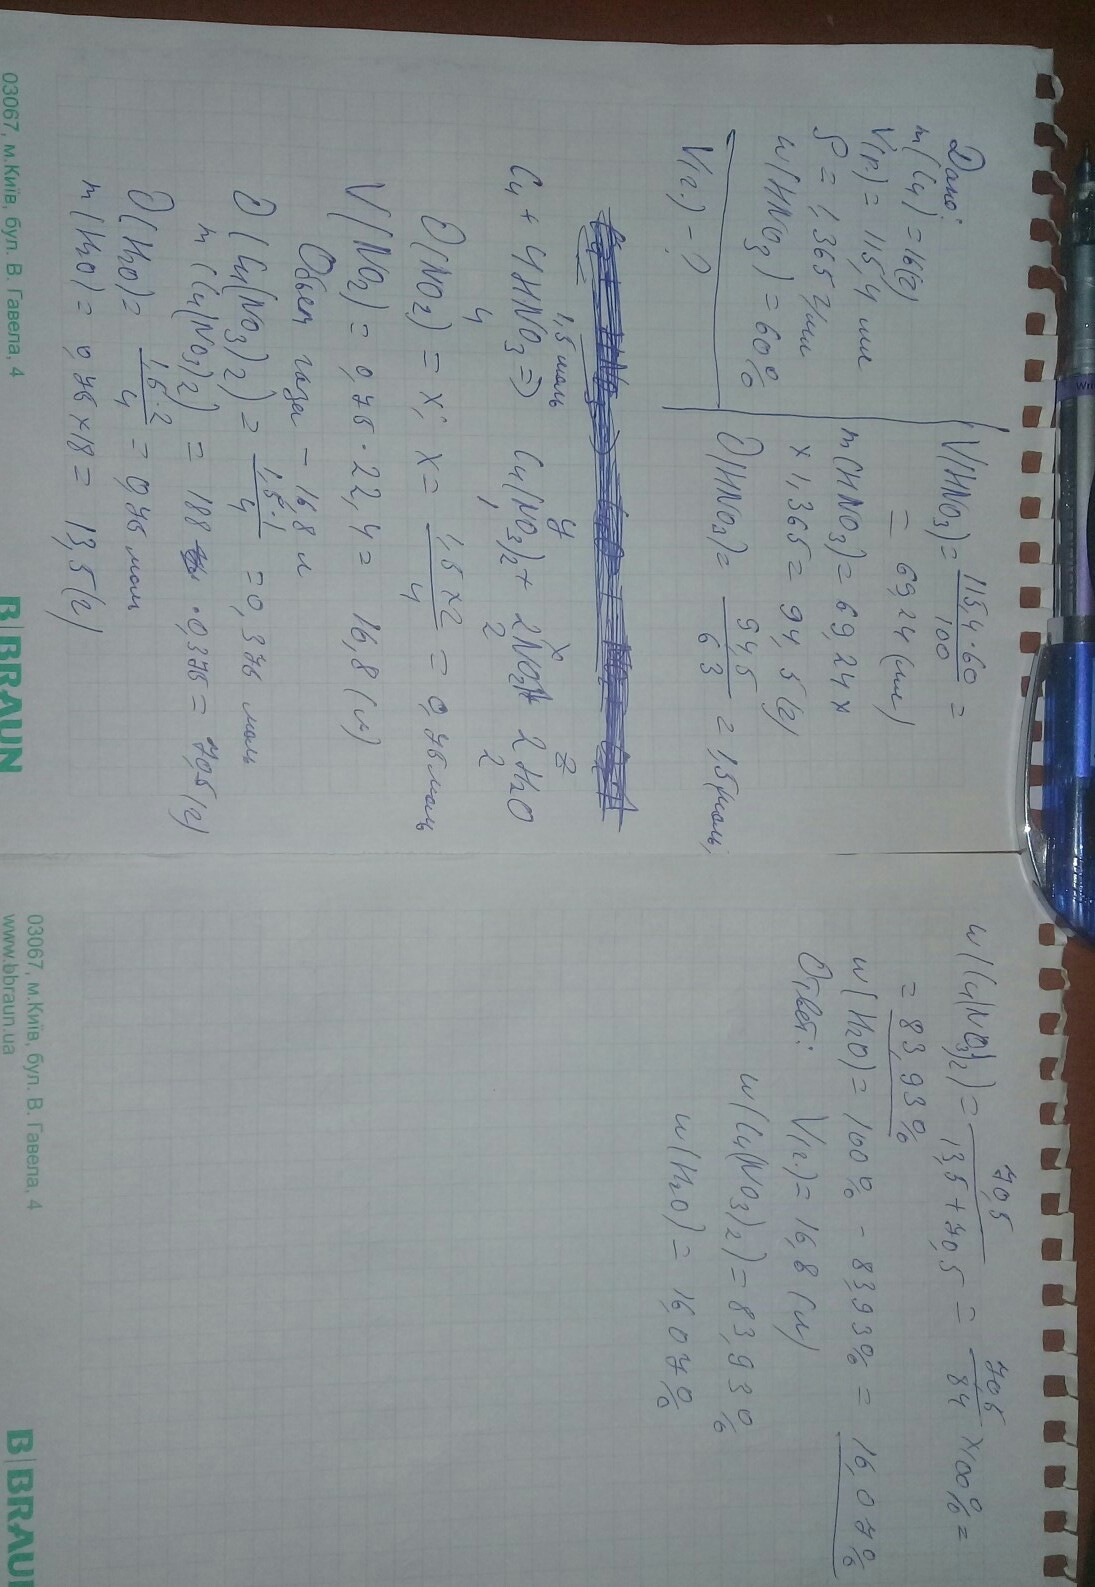 Дано:
m(Cu) = 16(г)
V(р) = 115,4 мл
ρ = 1,365 г/мл
w(HNO3) = 60%
V(г.) - ?
V(HNO3) = 115,4·60 / 100 =
= 69,24 (мл)
m(HNO3) = 69,24 x
x 1,365 = 94,5 (г)
ϑ(HNO3) = 94,5 / 63 = 1,5(моль);
1,5 моль y x z
Cu + 4HNO3 => Cu(NO3)2 + 2NO2 + 2H2O
4 1 2 2
ϑ(NO2) = x; x = 1,5 x 2 / 4 = 0,75 моль
V(NO2) = 0,75 · 22,4 = 16,8 (л)
Объем газа - 16,8 л
ϑ(Cu(NO3)2) = 1,5·1 / 4 = 0,375 моль
m(Cu(NO3)2) = 188 · 0,375 = 70,5 (г)
ϑ(H2O) = 1,5·2 / 4 = 0,75 моль
m(H2O) = 0,75 x 18 = 13,5 (г)
w(Cu(NO3)2) = 70,5 / 13,5 + 70,5 = 70,5 / 84 x 100% =
= 83,93%
w(H2O) = 100% - 83,93% = 16,07%
Ответ: V(г.) = 16,8 (л)
w(Cu(NO3)2) = 83,93%
w(H2O) = 16,07%
03067, м.Київ, бул. В. Гавела, 4
B|BRAUN
03067, м.Київ, бул. В. Гавела, 4
www.bbraun.ua
B|BRAU